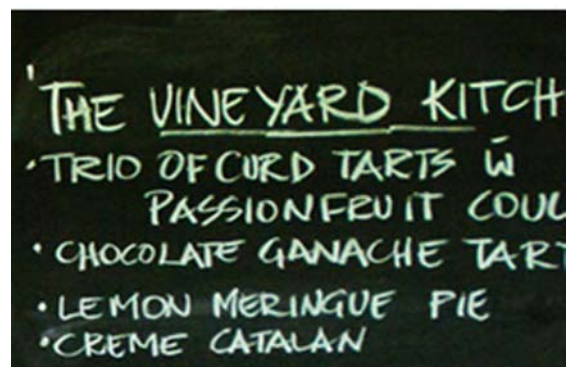 'THE VINEYARD KITCH
·TRIO OF CURD TARTS w̄
PASSIONFRUIT COUL
·CHOCOLATE GANACHE TART
·LEMON MERINGUE PIE
·CREME CATALAN